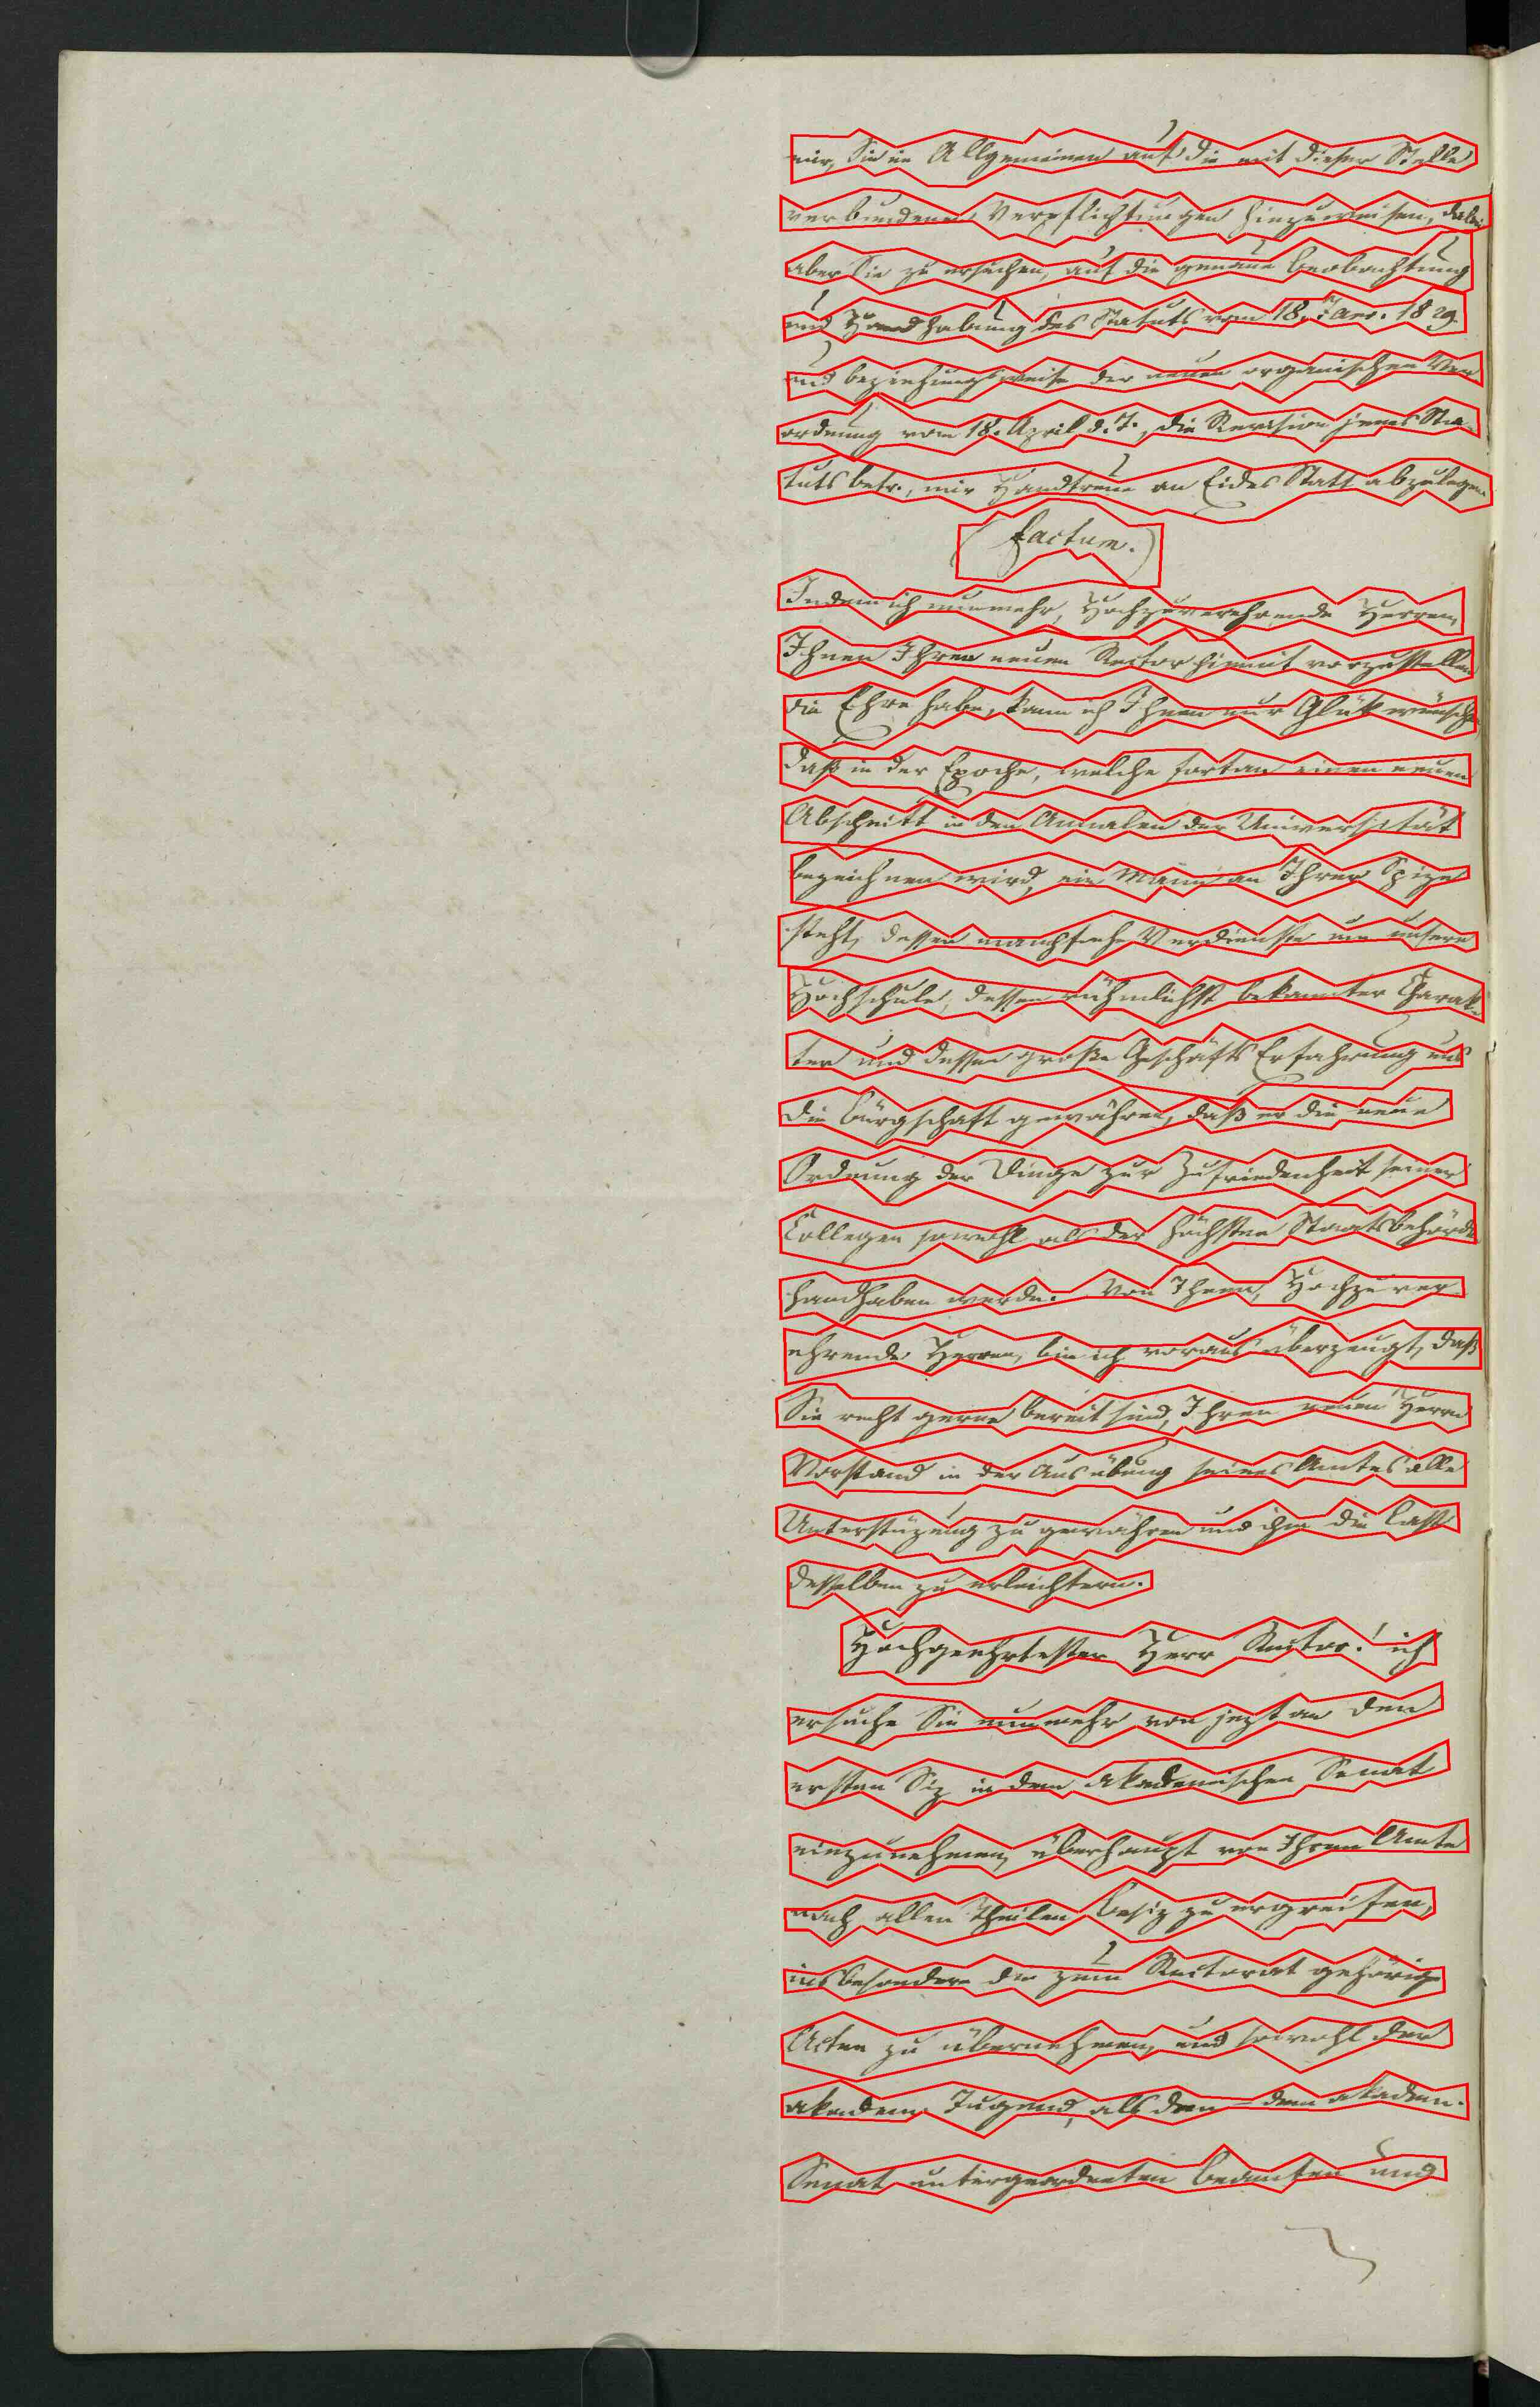 mir, Sie im Allgemeinen auf die mit dieser Stelle
verbundenen Verpflichtungen hinzuweisen, dabei
aber Sie zu ersuchen, auf die genaue Beobachtung
und Handhabung des Statuts vom 18. Jan. 1829.
und beziehungsweise der neuen organischen Ver
ordnung vom 18. April d. J., die Revision jenes Sta-
tuts betr., mir Handtreue an Eides Statt abzulegen.
(factum.)
Indem ich nunmehr, Hochzuverehrende Herren,
Ihnen Ihren neuen Rector hiemit vorzustellen
die Ehre habe, kann ich Ihnen nur Glük wünschen,
daß in der Epoche, welche fortan einen neuen
Abschnitt in den Annalen der Universität
bezeichnen wird, ein Mann an Ihrer Spize
steht, dessen manchfache Verdienste um unsere
Hochschule, dessen rühmlichst bekannter Charak-
ter und dessen große Geschäfts Erfahrung uns
die Bürgschaft gewähren, daß er die neue
Ordnung der Dinge zur Zufriedenheit seiner
Collegen sowohl als der höchsten Staatsbehörde
handhaben werde. Von Ihnen, Hochzuver
ehrende Herren, bin ich voraus überzeugt, daß
Sie recht gerne bereit sind, Ihren neuen Herrn
Vorstand in der Ausübung seines Amtes alle
Unterstüzung zu gewähren und ihm die Last
desselben zu erleichtern.
Hochgeehrtester Herr Rector! ich
ersuche Sie nunmehr von jezt an den
ersten Siz in dem akademischen Senat
einzunehmen, überhaupt von Ihrem Amte
nach allen Theilen Besiz zu ergreifen,
insbesondere die zum Rectorat gehörige
Acten zu übernehmen, und sowohl der
akadem. Jugend, als den – dem akadem.
Senat untergeordneten Beamten und